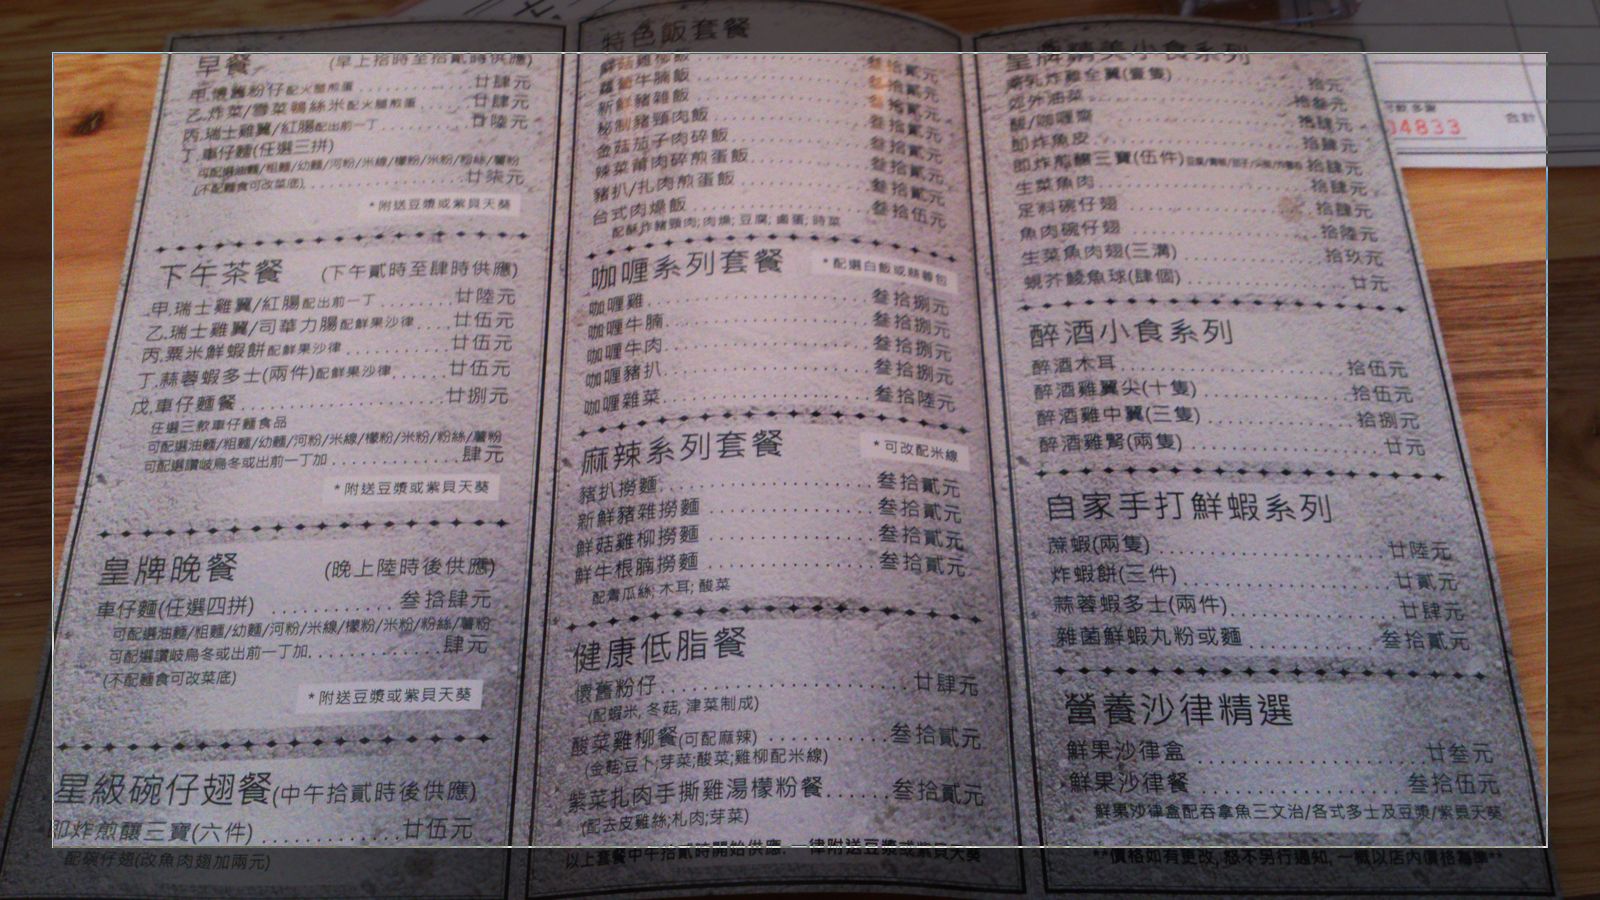 早餐 (早上拾時至拾貳時供應)
甲.懷舊粉仔配火腿煎蛋 廿肆元
乙.炸菜/雪菜鴨絲米配火腿煎蛋 廿肆元
丙.瑞士雞翼/紅腸配出前一丁 廿陸元
丁.車仔麵(任選三拼)
可配選油麵/粗麵/幼麵/河粉/米線/檬粉/米粉/粉絲/薯粉
(不配麵食可改菜底) 廿柒元
*附送豆漿或紫貝天葵
下午茶餐 (下午貳時至肆時供應)
甲.瑞士雞翼/紅腸配出前一丁 廿陸元
乙.瑞士雞翼/司華力腸配鮮果沙律 廿伍元
丙.粟米鮮蝦餅配鮮果沙律 廿伍元
丁.蒜蓉蝦多士(兩件)配鮮果沙律 廿伍元
戊.車仔麵餐 廿捌元
任選三款車仔麵食品
可配選油麵/粗麵/幼麵/河粉/米線/檬粉/米粉/粉絲/薯粉
可配選讚岐烏冬或出前一丁加 肆元
*附送豆漿或紫貝天葵
皇牌晚餐 (晚上陸時後供應)
車仔麵(任選四拼) 叁拾肆元
可配選油麵/粗麵/幼麵/河粉/米線/檬粉/米粉/粉絲/薯粉
可配選讚岐烏冬或出前一丁加 肆元
(不配麵食可改菜底)
*附送豆漿或紫貝天葵
星級碗仔翅餐(中午拾貳時後供應)
即炸煎釀三寶(六件) 廿伍元
配碗仔翅(改魚肉翅加兩元)
特色飯套餐
鮮菇雞柳飯 叁拾貳元
蘿蔔牛腩飯 叁拾貳元
新鮮豬雜飯 叁拾貳元
秘制豬頸肉飯 叁拾貳元
金菇茄子肉碎飯 叁拾貳元
辣菜甫肉碎煎蛋飯 叁拾貳元
豬扒/扎肉煎蛋飯 叁拾貳元
台式肉燥飯 叁拾伍元
配酥炸豬頸肉; 肉燥; 豆腐; 鹵蛋; 時菜
咖喱系列套餐 *配選白飯或蒜蓉包
咖喱雞 叁拾捌元
咖喱牛腩 叁拾捌元
咖喱牛肉 叁拾捌元
咖喱豬扒 叁拾捌元
咖喱雜菜 叁拾陸元
麻辣系列套餐 *可改配米線
豬扒撈麵 叁拾貳元
新鮮豬雜撈麵 叁拾貳元
鮮菇雞柳撈麵 叁拾貳元
鮮牛根腩撈麵 叁拾貳元
配青瓜絲; 木耳; 酸菜
健康低脂餐
懷舊粉仔 廿肆元
(配蝦米, 冬菇, 津菜制成)
酸菜雞柳餐(可配麻辣) 叁拾貳元
(金菇;豆卜;芽菜;酸菜;雞柳配米線)
紫菜扎肉手撕雞湯檬粉餐 叁拾貳元
(配去皮雞絲;札肉;芽菜)
以上套餐中午拾貳時開始供應. 一律附送豆漿或紫貝天葵
皇牌精美小食系列
南乳炸雞全翼(壹隻) 拾元
郊外油菜 拾叁元
酸/咖喱齋 拾肆元
即炸魚皮 拾肆元
即炸煎釀三寶(伍件) 拾肆元
生菜魚肉 拾肆元
足料碗仔翅 拾肆元
魚肉碗仔翅 拾陸元
生菜魚肉翅(三溝) 拾玖元
蜆芥鯪魚球(肆個) 廿元
醉酒小食系列
醉酒木耳 拾伍元
醉酒雞翼尖(十隻) 拾伍元
醉酒雞中翼(三隻) 拾捌元
醉酒雞腎(兩隻) 廿元
自家手打鮮蝦系列
蔗蝦(兩隻) 廿陸元
炸蝦餅(三件) 廿貳元
蒜蓉蝦多士(兩件) 廿肆元
雜菌鮮蝦丸粉或麵 叁拾貳元
營養沙律精選
鮮果沙律盒 廿叁元
鮮果沙律餐 叁拾伍元
鮮果沙律盒配吞拿魚三文治/各式多士及豆漿/紫貝天葵
**價格如有更改, 恕不另行通知, 一概以店內價格為準**
04833
合計